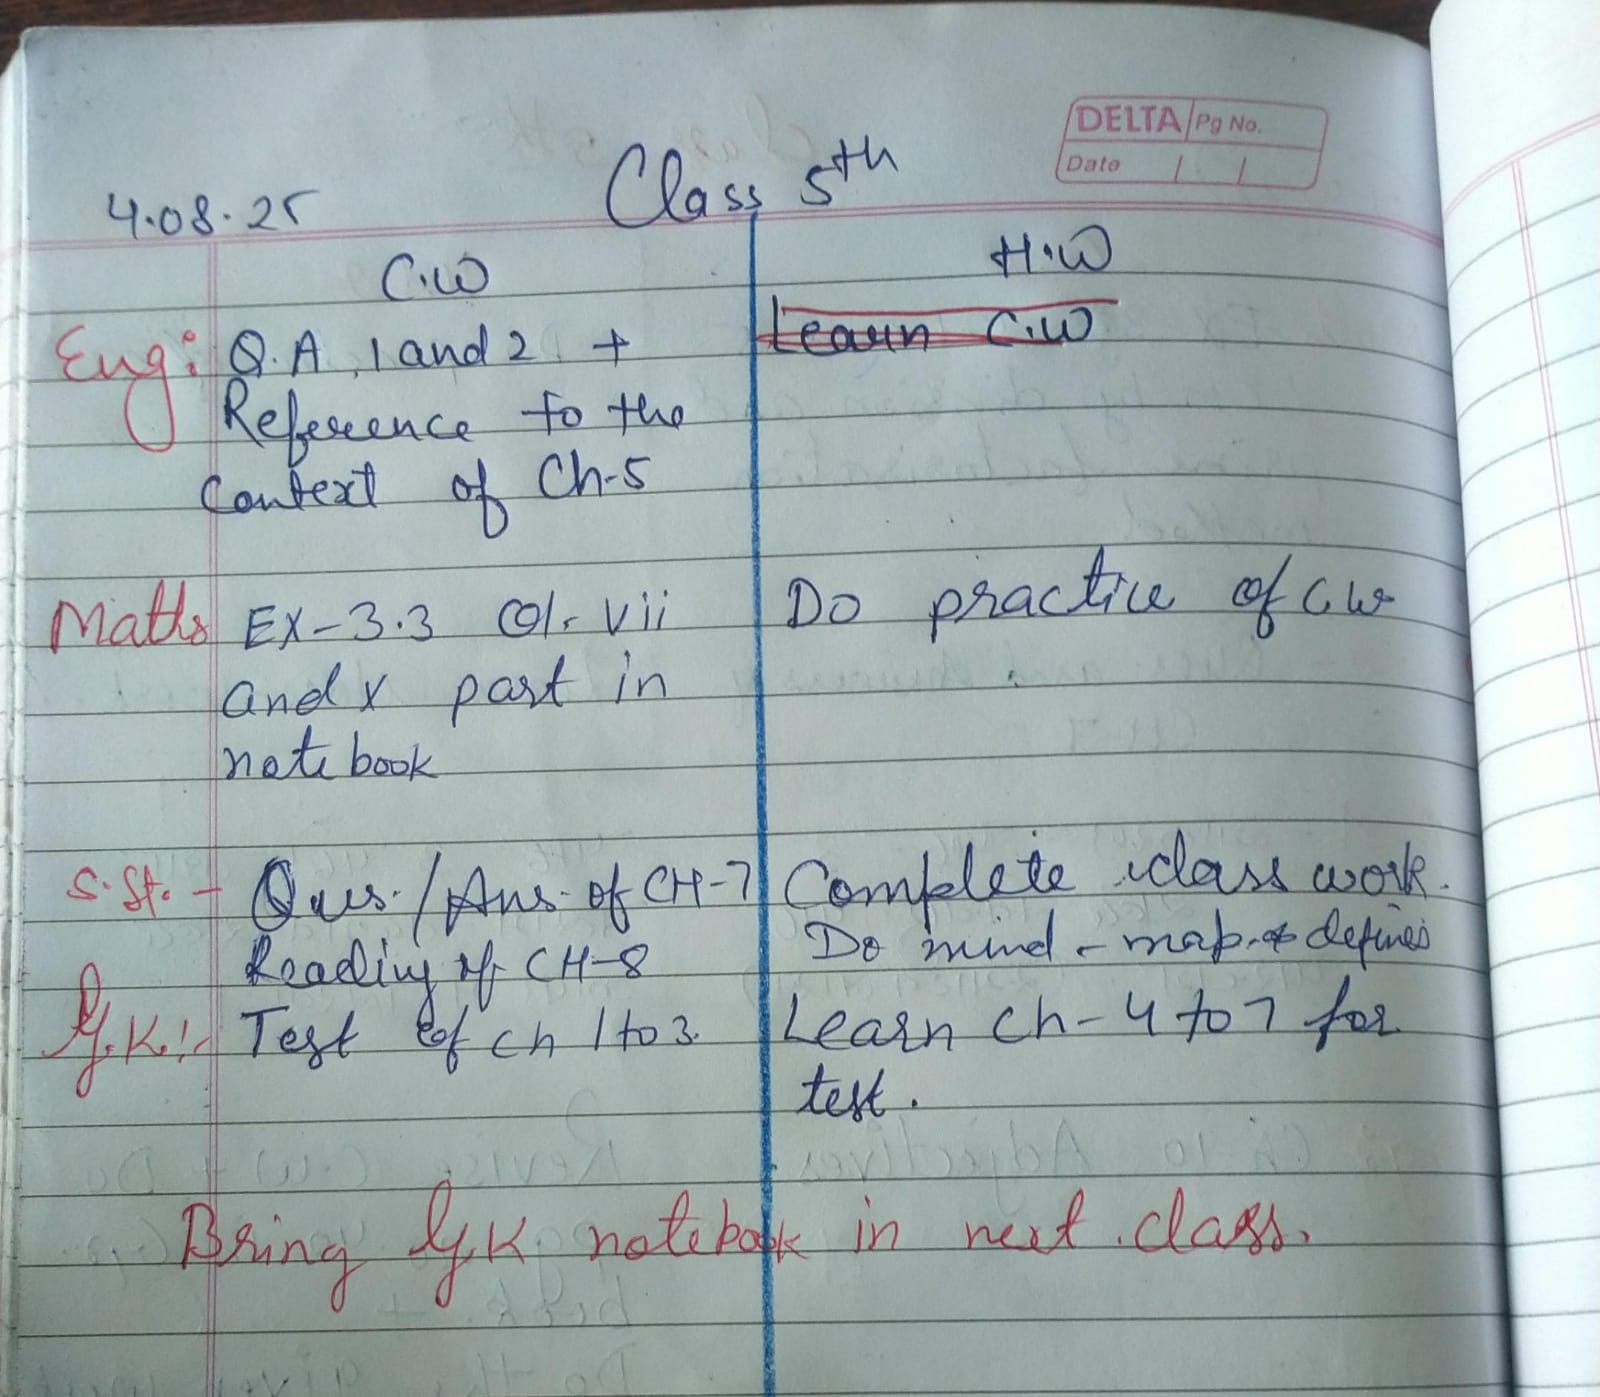 DELTA Pg No.
Date / /
Class 5th
4.08.25
C.W H.W
Eng: Q.A, 1 and 2 + Learn C.W
Reference to the
Context of Ch-5
Maths EX-3.3 Q1. vii Do practice of C.W
and x part in
notebook
S.St. - Ques./Ans. of CH-7 Complete class work.
Reading of CH-8 Do mind-map & defines
G.K:- Test of ch 1 to 3. Learn ch-4 to 7 for
test.
Bring G.K notebook in next class.